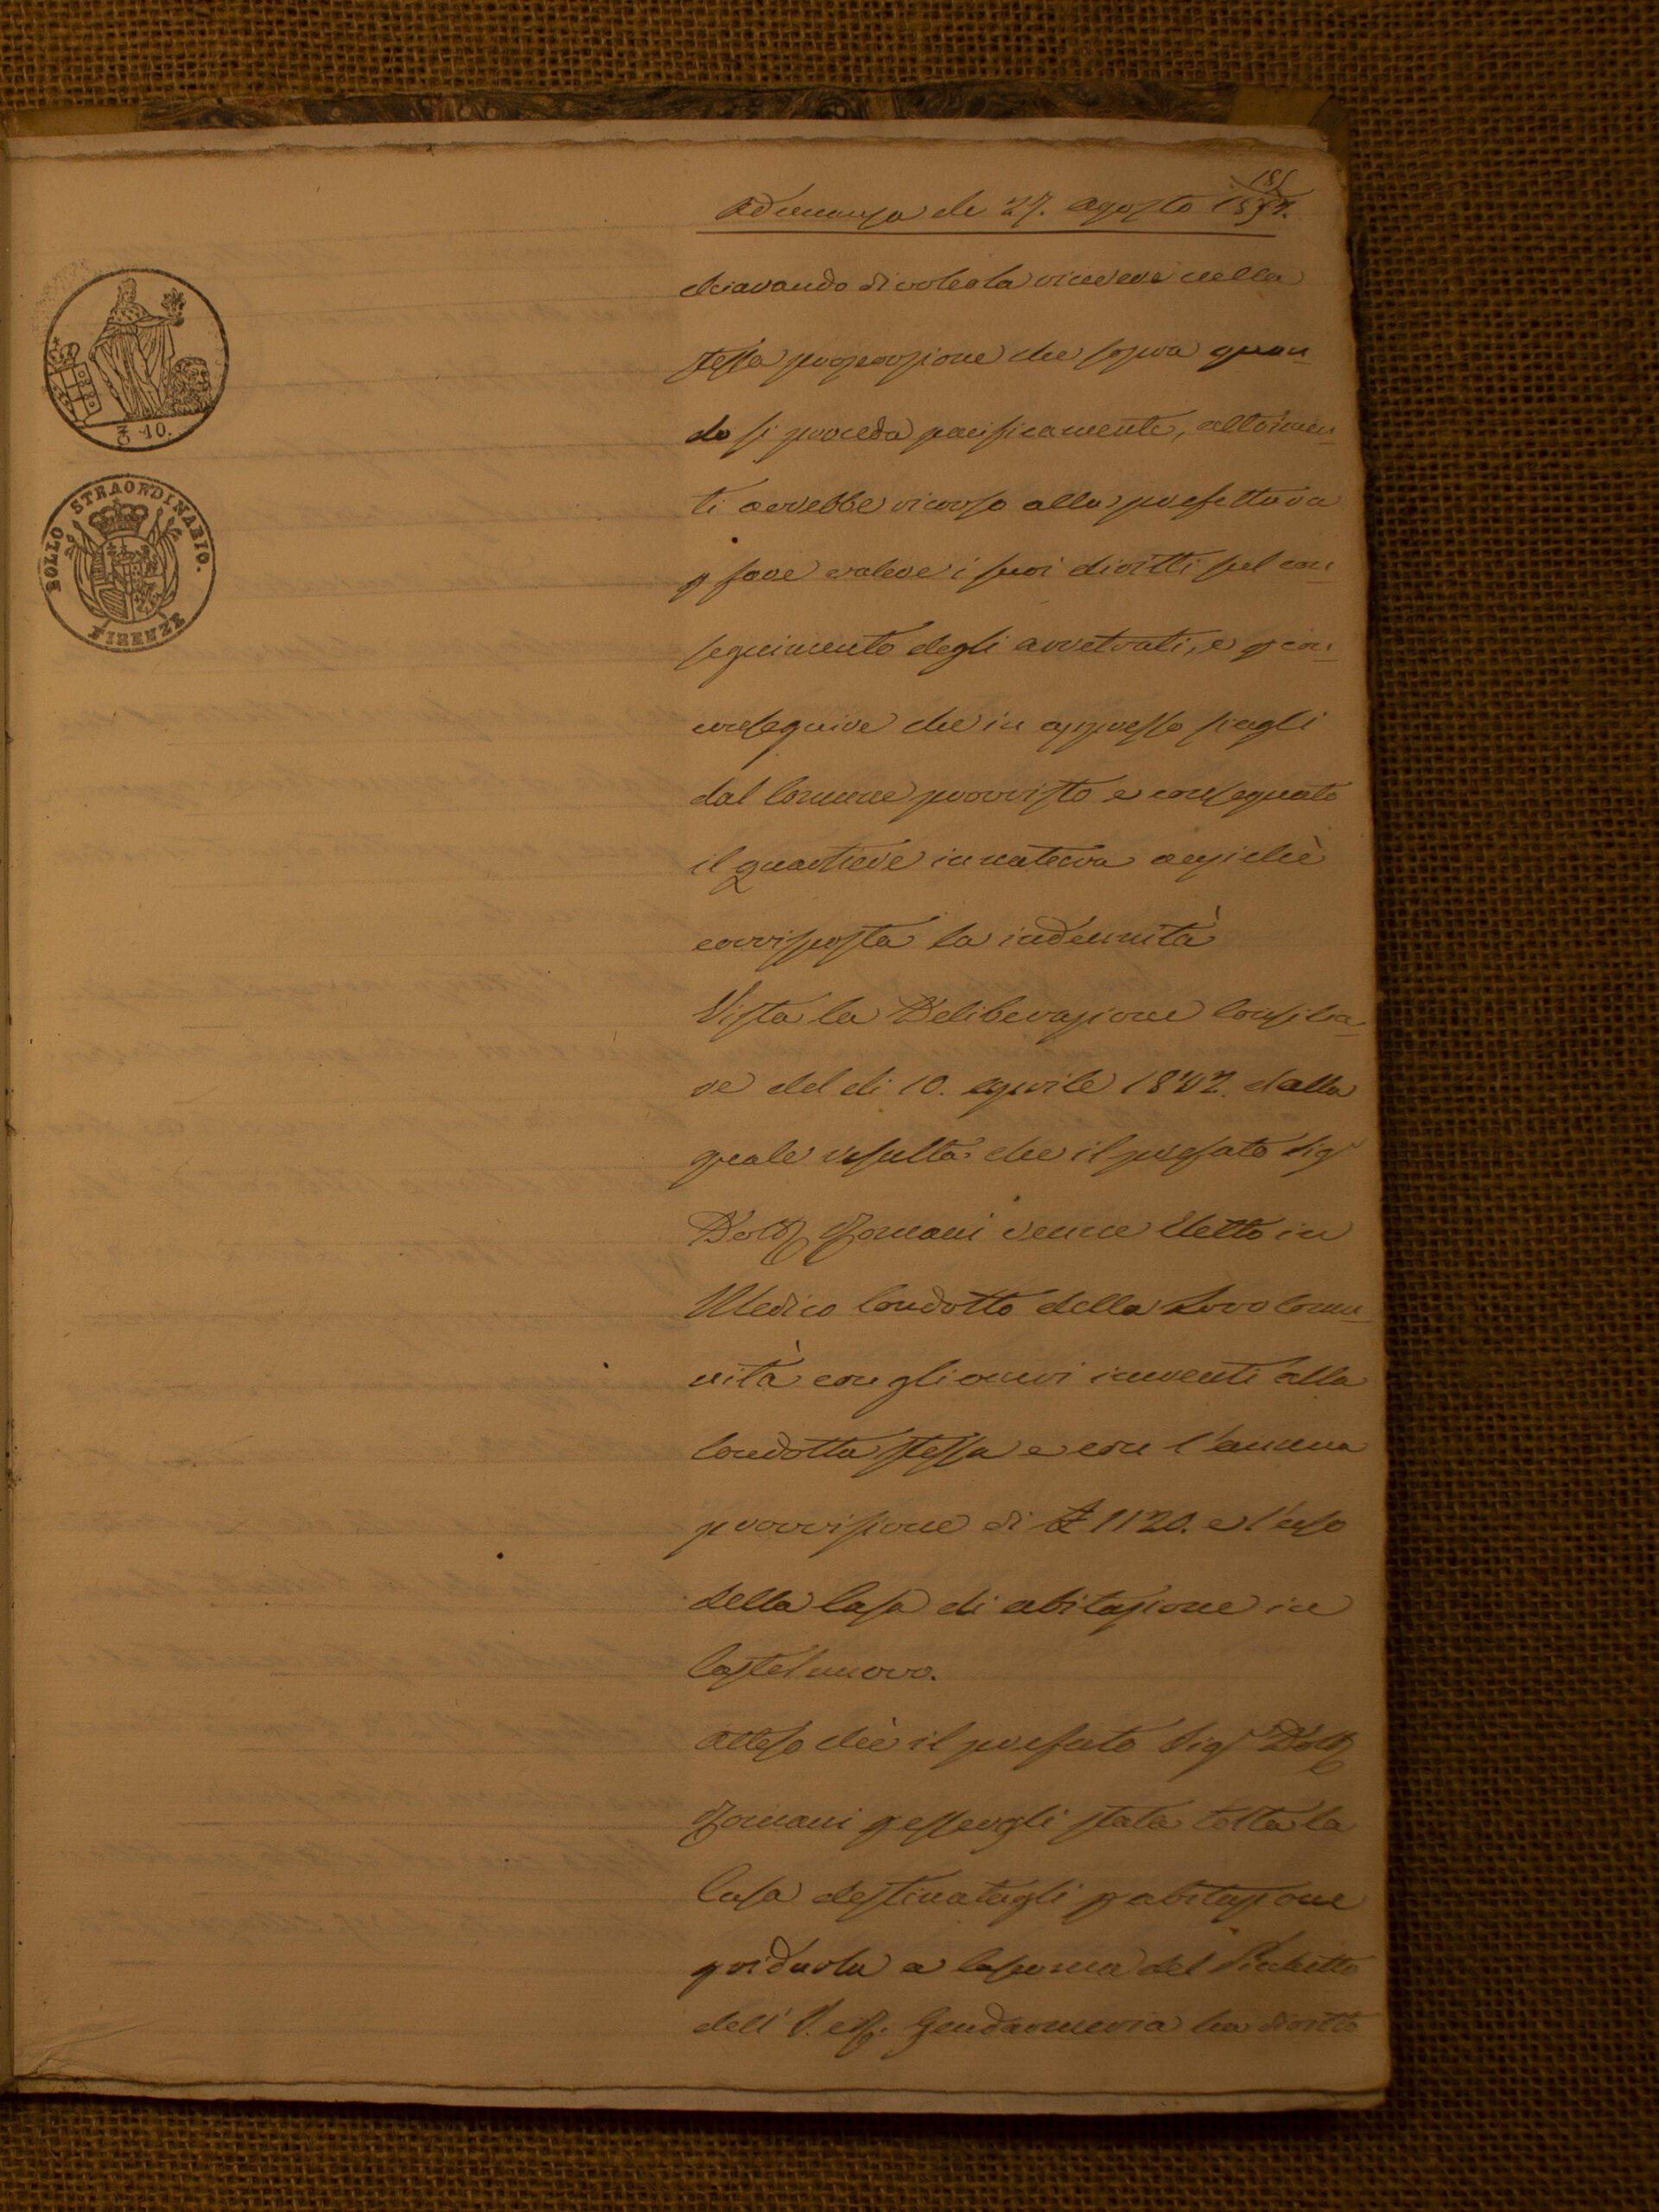 181
Adunanza de 27. Agosto 1857.
chiarando di volerla ricevere nella
stessa proporzione che sopra quan
do si proceda pacificamente, altrimen
ti avrebbe ricorso alla prefettura
p fare valere i suoi diritti sul con
seguimento degli arretrati, e p con
conseguire che in appresso siagli
dal Comune provvisto e consegnato
il quartiere in natura anziché
corrisposta la indennità
Vista la Deliberazione Consilia
re del di 10. Aprile 1847. dalla
quale resulta che il prefato Sigr
Dott Romani venne eletto in
Medico Condotto della Loro Comu
nità con gli oneri inerenti alla
Condotta stessa e con l'annua
provvisione di £ 1120. e l'uso
della Casa di abitazione in
Castelnuovo.
Atteso chè il prefato Sigr Dott
Romani p essergli stata tolta la
Casa destinatagli p abitazione
p ridurla a Caserma del Picchetto
dell' I. e R. Gendarmeria ha diritto
£ 10.
BOLLO STRAORDINARIO.
FIRENZE